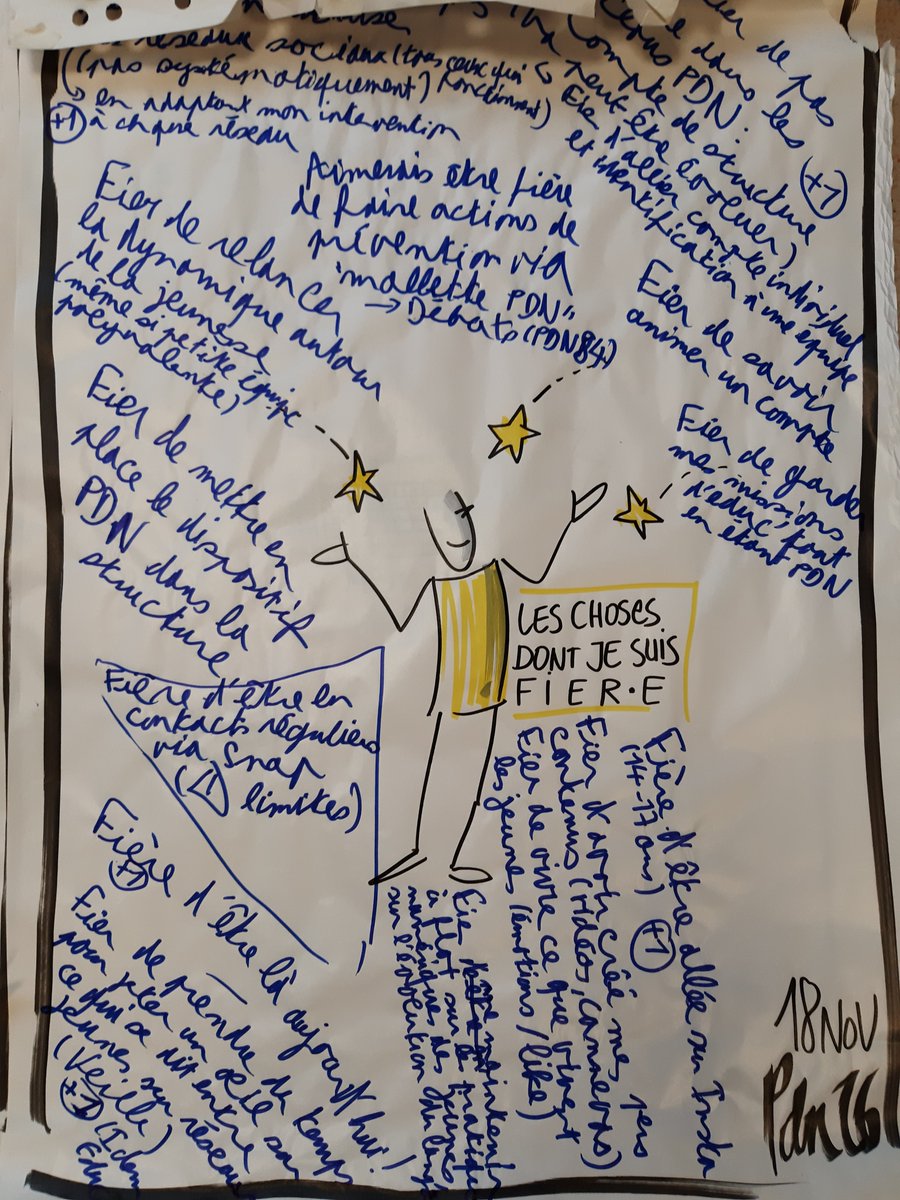 réseaux sociaux (tous ceux qui
(pas systématiquement) fonctionnent)
↳ en adaptant mon intervention
+1 à chaque réseau
Fier de pas
dans les
PDN.
compte de structure +1
↳ peut être évoluer)
Fier d'aller compte individuel
et identification à une équipe
Aimerais être fière
de faire actions de
prévention via
"mallette PDN"
→ Débats (PDN84)
Fier de relancer
la dynamique autour
de la jeunesse
(même si petite équipe
polyvalente)
Fier de savoir
animer un compte
Fier de garder
mes missions
d'educ, tout
en étant PDN
Fier de mettre en
place le dispositif
PDN dans la
structure
LES CHOSES
DONT JE SUIS
FIER·E
Fière d'être en
contacts réguliers
via Snap
(⚠ limites)
Fière d'être là aujourd'hui !
+1
Fier de prendre du temps
pour jeter un œil sur
ce qui se dit entre
jeunes sur réseau
(Veille)
+1
Fier me maintenir
à flot sur les pratiques
numériques des jeunes
sur l'évolution du
Fier de vivre ce que vivent
les jeunes (émotions / like)
Fier d'avoir créé mes
contenus (vidéos, cannevas)
Fière d'être allée sur Insta
(14-17 ans) +1
18 NOV
Pdn 76